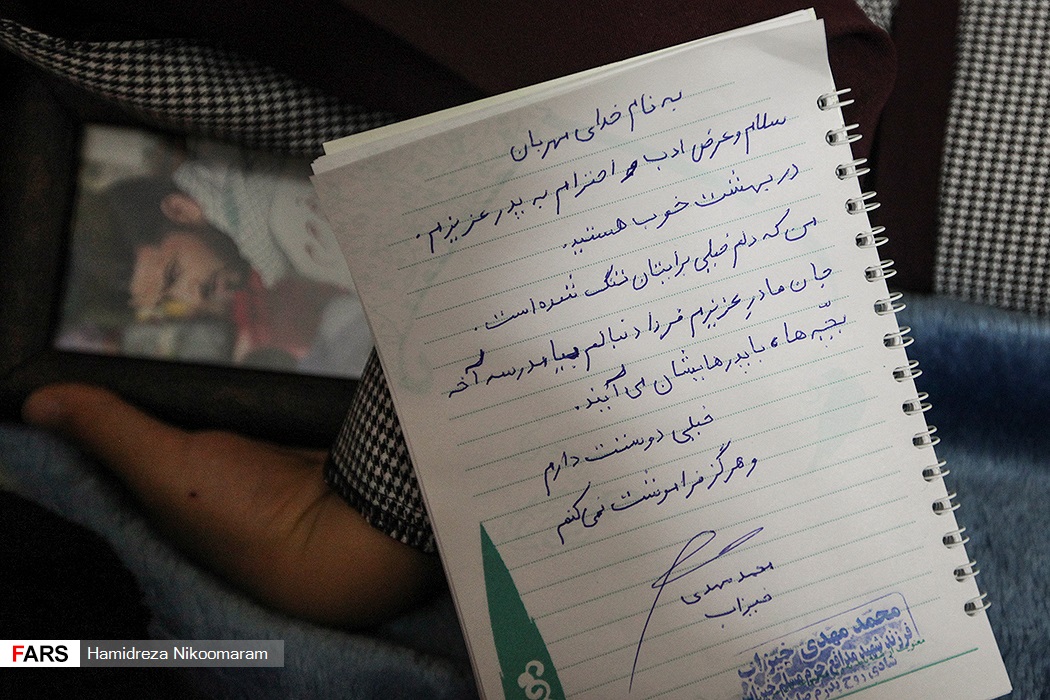 به نام خدای مهربان
سلام و عرض ادب و احترام به پدر عزیزم.
در بهشت خوب هستید.
من که دلم خیلی برایتان تنگ شده است.
جان مادر عزیزم فردا دنبالم بیا مدرسه آخه
بچّه ها، با پدرهایشان می آیند.
خیلی دوستت دارم
و هرگز فراموشت نمی کنم
محمد مهدی
خیزاب
محمّد مهدی خیزاب
فرزند شهید مدافع حرم مسلم خیزاب
شادی روح پدرم
FARS
Hamidreza Nikoomaram